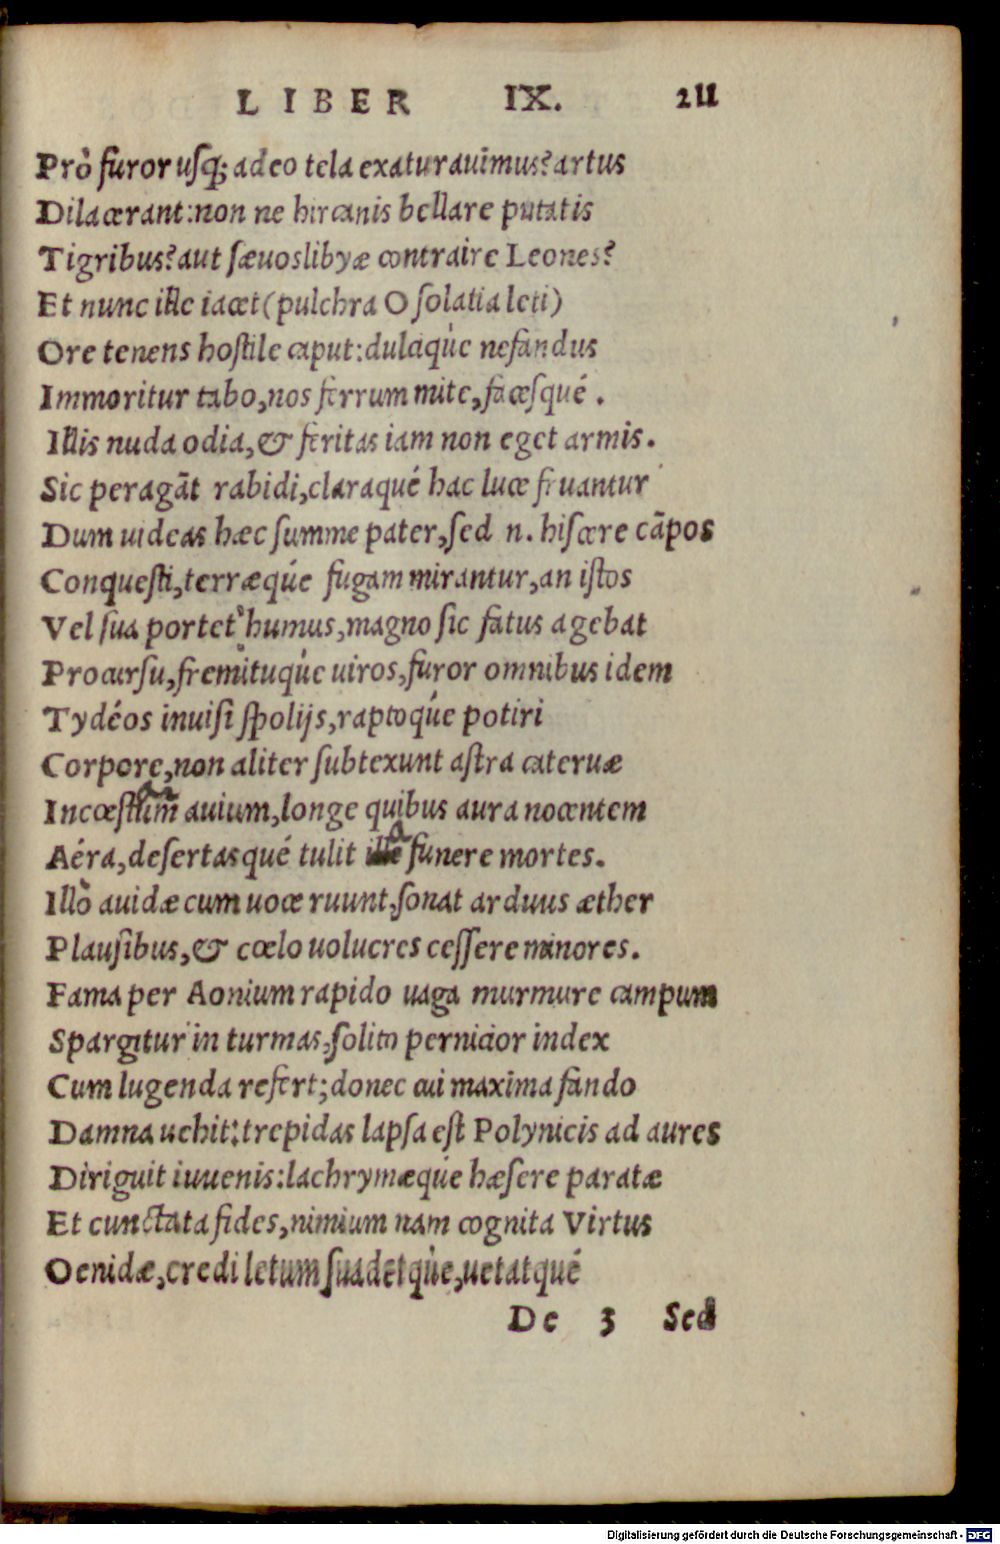 LIBER IX. 211
Prò furor usq; adeo tela exaturauimus? artus
Dilacerant: non ne hircanis bellare putatis
Tigribus? aut sæuos libyæ contraire Leones?
Et nunc ille iacet (pulchra O solatia leti)
Ore tenens hostile caput: dulciq́ue nefandus
Immoritur tabo, nos ferrum mite, facesqué.
Illis nuda odia, & feritas iam non eget armis.
Sic peragãt rabidi, claraqué hac luce fruantur
Dum uideas hæc summe pater, sed n. hiscere cãpos
Conquesti, terræq́ue fugam mirantur, an istos
Vel sua portet humus, magno sic fatus agebat
Procursu, fremituq́ue uiros, furor omnibus idem
Tydéos inuisi spolijs, raptoq́ue potiri
Corpore, non aliter subtexunt astra cateruæ
Incœstum auium, longe quibus aura nocentem
Aéra, desertasqué tulit illa funere mortes.
Illò auidæ cum uoce ruunt, sonat arduus æther
Plausibus, & cœlo uolucres cessere minores.
Fama per Aonium rapido uaga murmure campum
Spargitur in turmas, solito pernicior index
Cum lugenda refert; donec cui maxima fando
Damna uehit: trepidas lapsa est Polynicis ad aures
Diriguit iuuenis: lachrymæq́ue hæsere paratæ
Et cunctata fides, nimium nam cognita Virtus
Oenidæ, credi letum suadetq̀ue, uetatqué
De 3 Sed
Digitalisierung gefördert durch die Deutsche Forschungsgemeinschaft - DFG